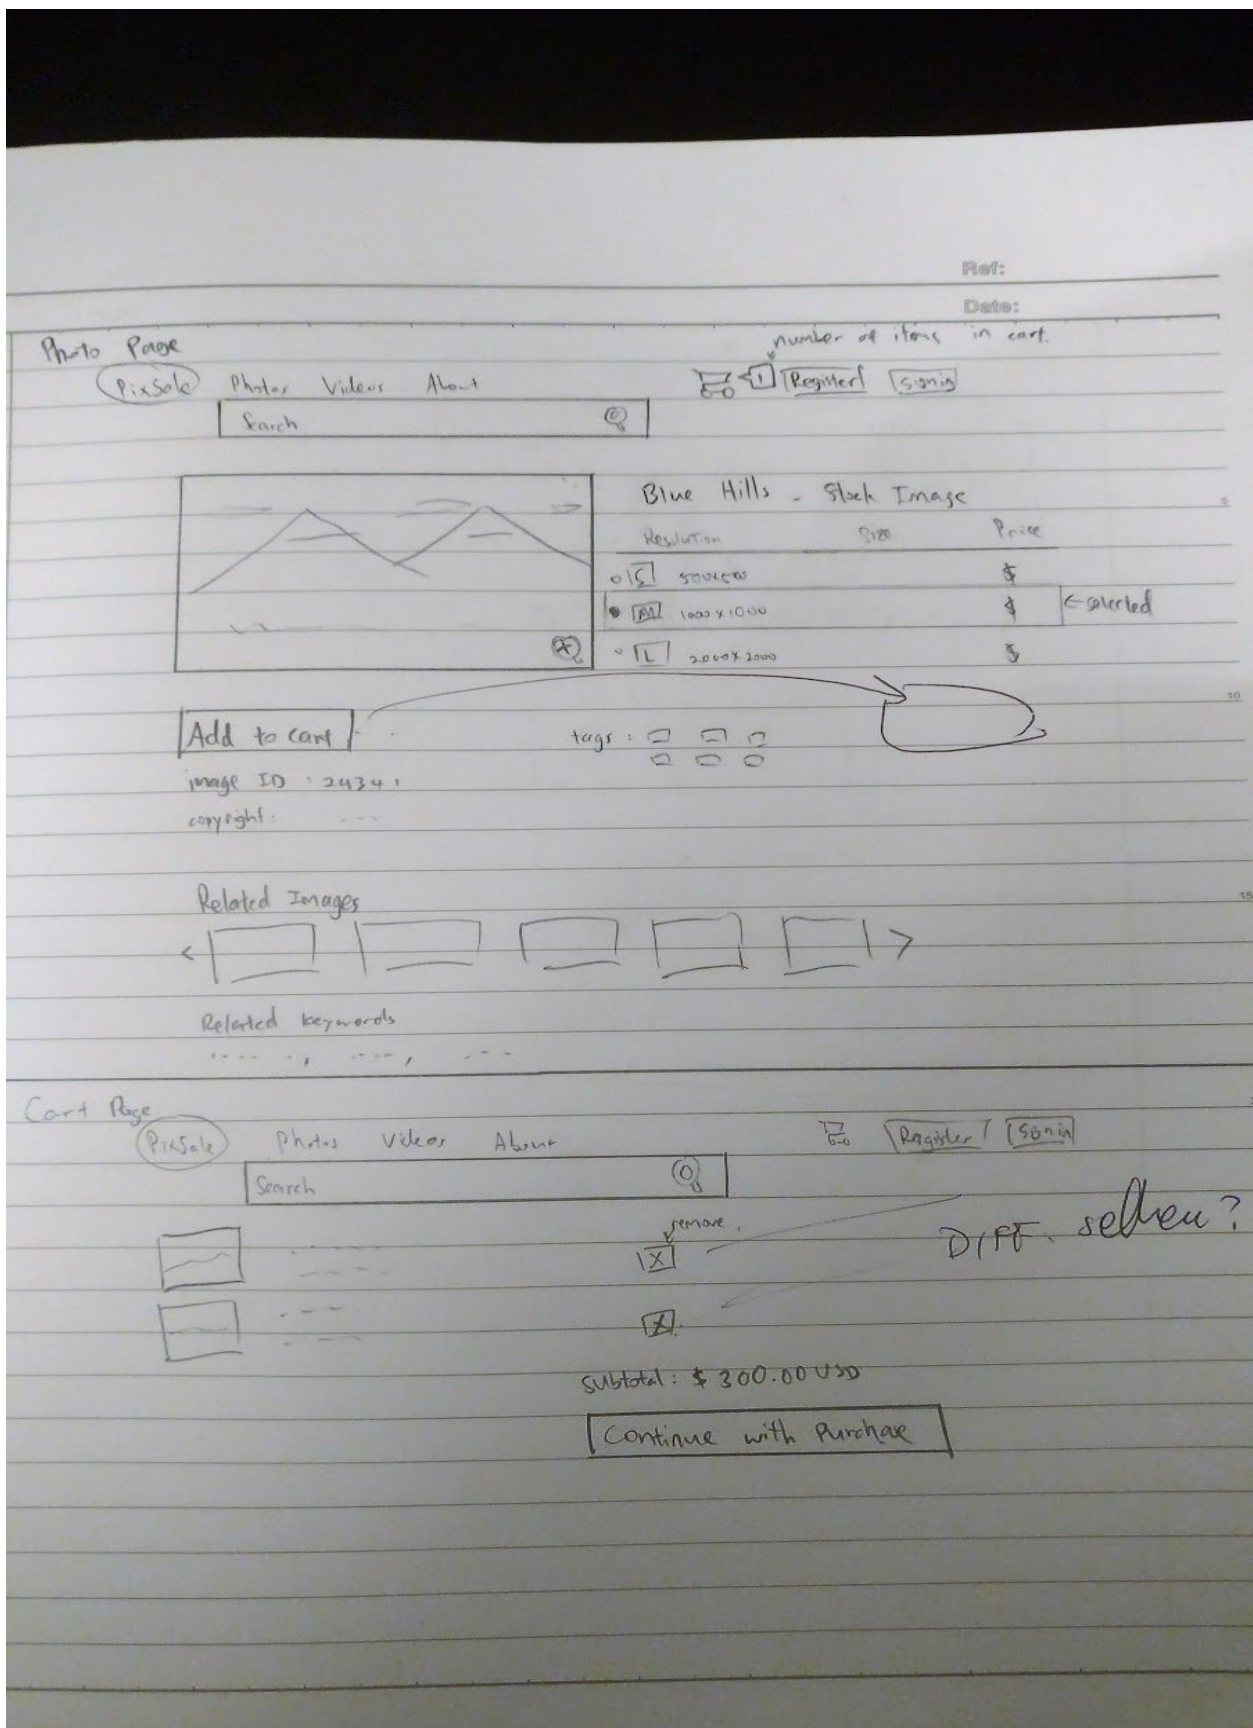 Ref:
Date:
Photo Page
number of items in cart.
PixSale Photos Videos About 1 Register Signin
Search
Blue Hills - Stock Image
Resolution Size Price
S 500x500 $
M 1000x1000 $ ← selected
L 2000x2000 $
Add to cart
tags:
image ID : 24341
copyright:
Related Images
< >
Related keywords
Cart Page
PixSale Photos Videos About Register Signin
Search
remove
X
DIFF.
X
subtotal: $ 300.00 USD
Continue with Purchase
5
10
15